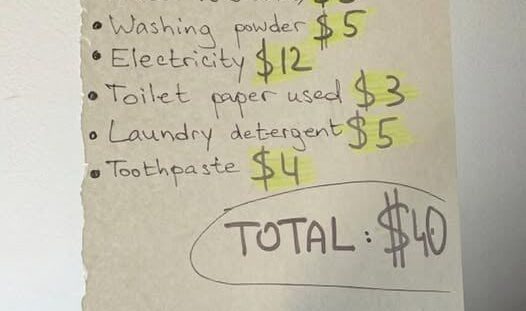 • Washing powder $5
• Electricity $12
• Toilet paper used $3
• Laundry detergent $5
• Toothpaste $4
TOTAL: $40